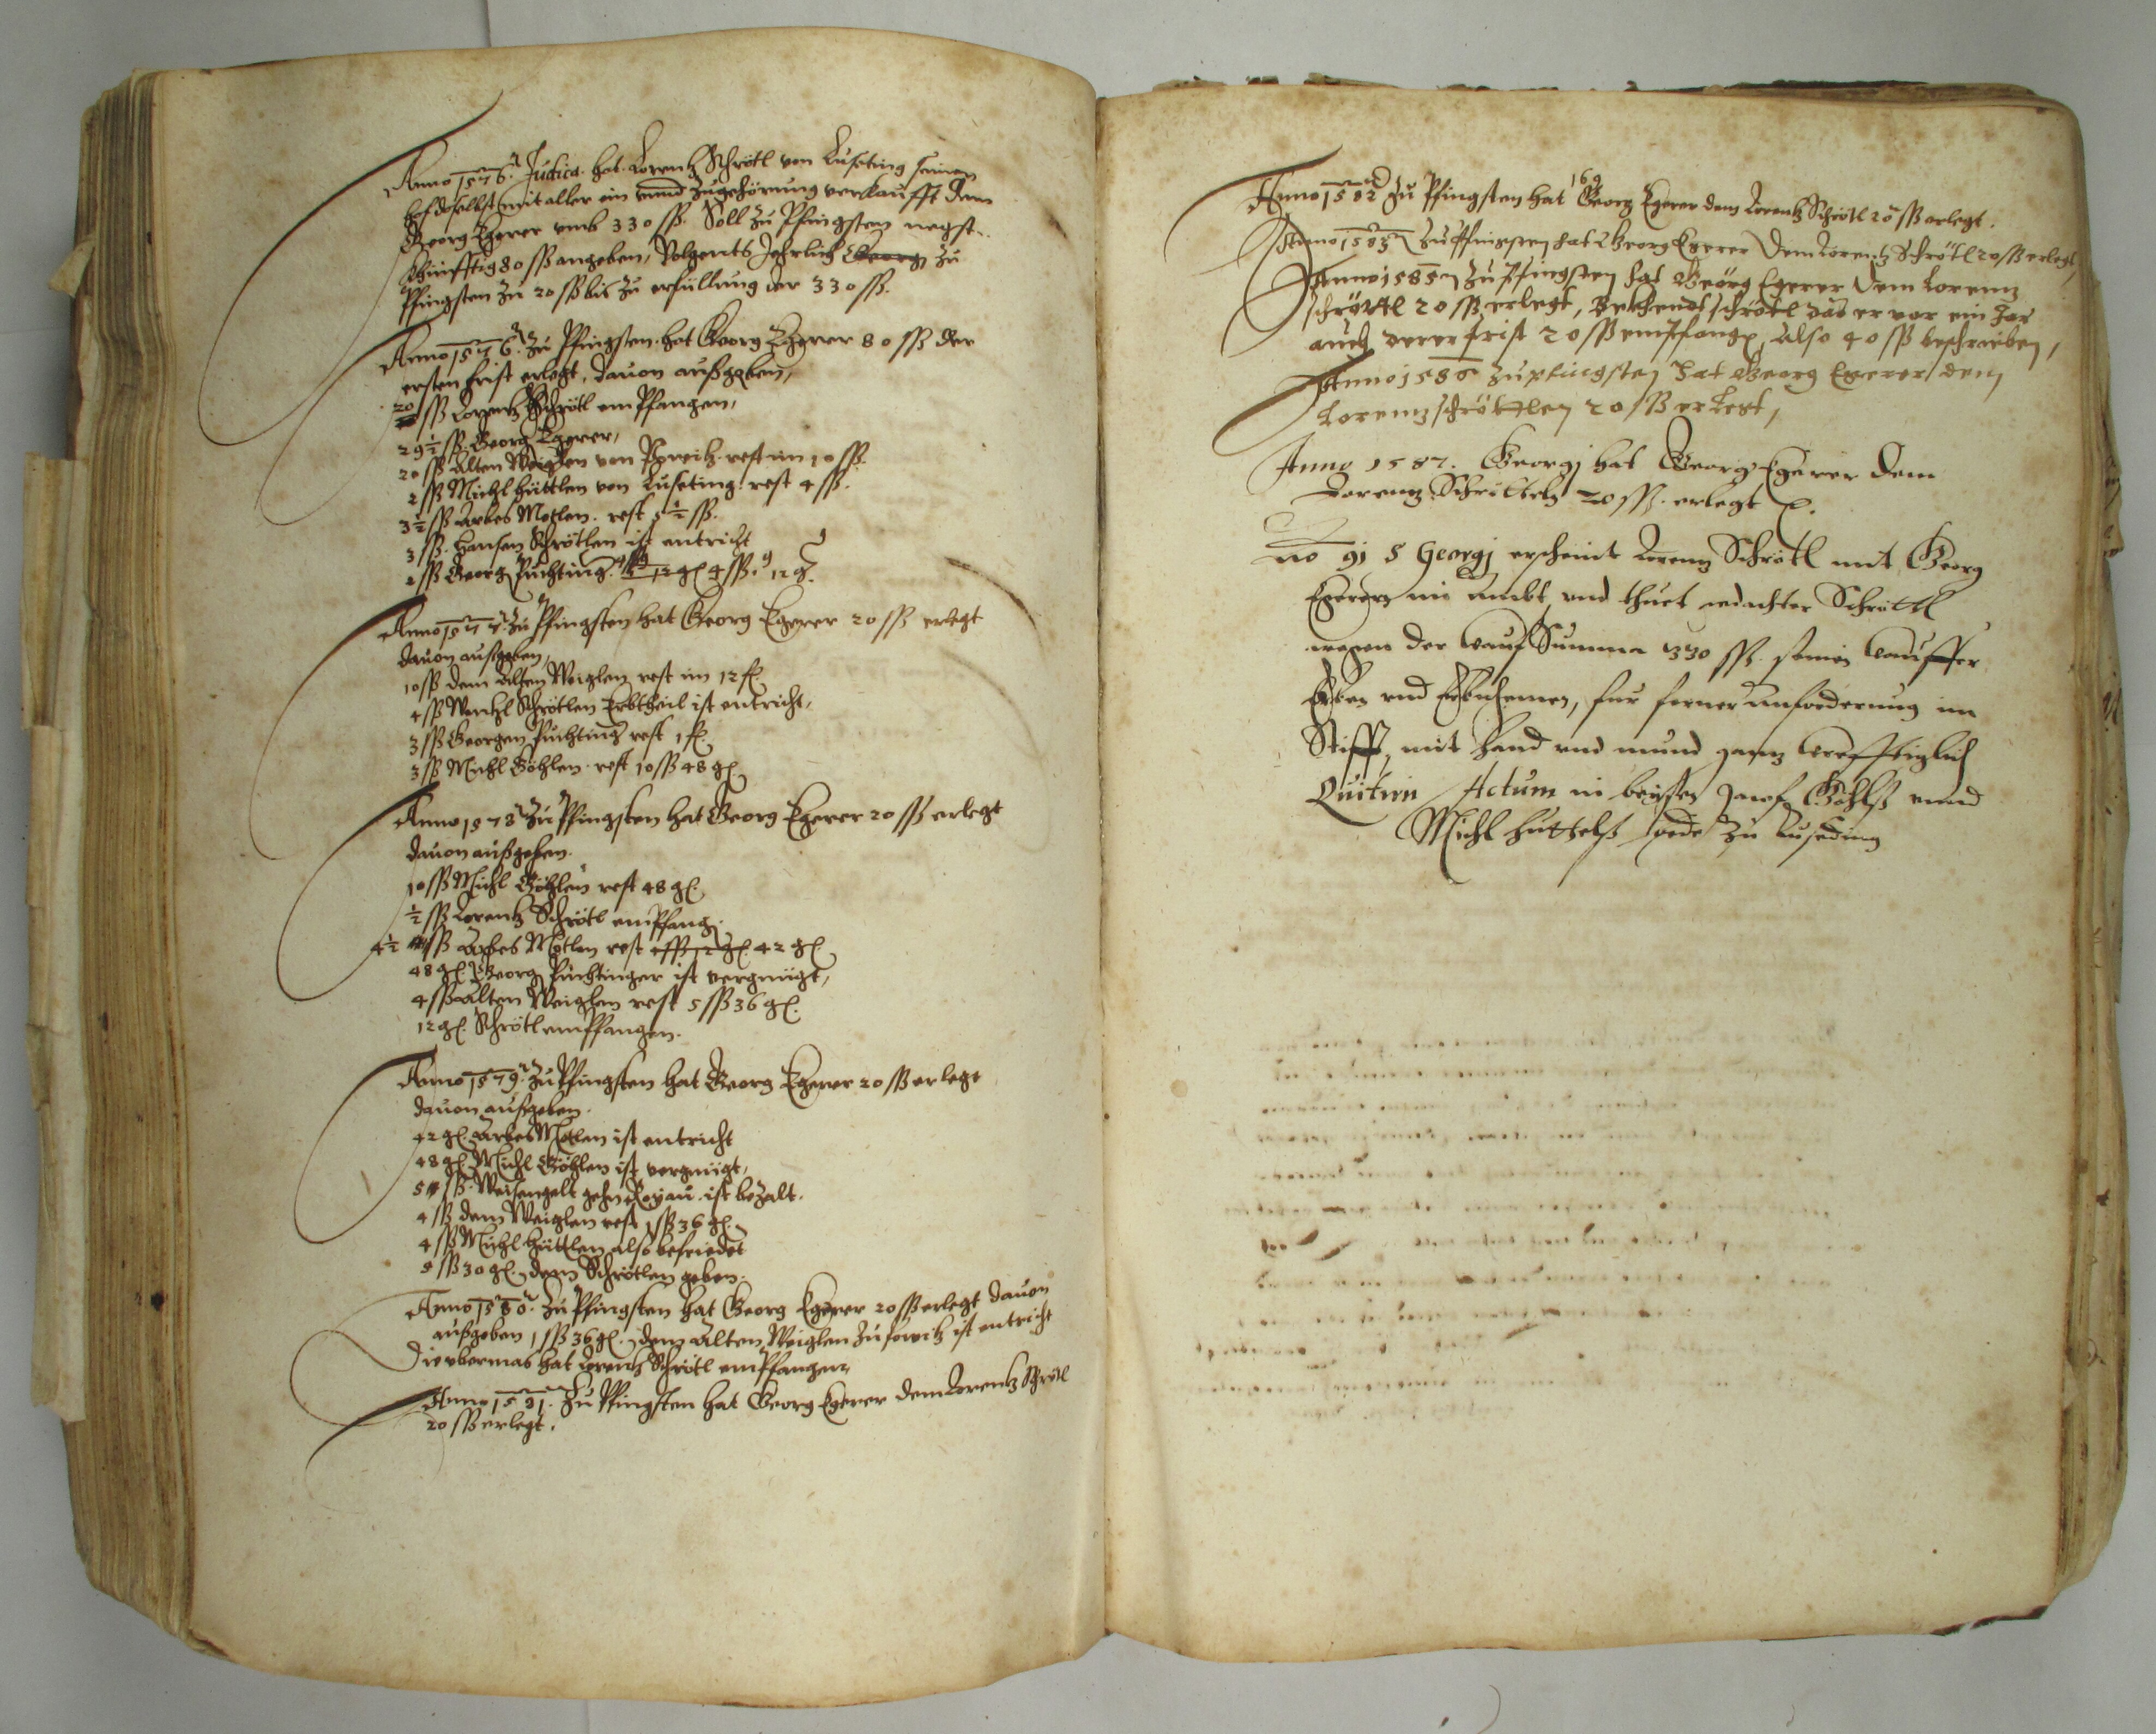 Anno 1576. Judica. hat Lorentz Schrötl von Luseting seinen
hof daselbst mit aller ein vnnd zugehörung verkaufft dem
Georg Egerer vmb 330 ß. Soll zu Pfingsten negst
Künfftig 80 ß angeben, Volgents Jehrlich Georg zu
Pfingsten zu 20 ß bis zu erfüllung der 330 ß.
Anno 1576. zu Pfingsten hat Georg Egerer 80 ß der
ersten frist erlegt, dauon außgeben,
20 ß Lorentz Schrötl empfangen,
29½ ß. Georg Egerer,
20 ß Alten Weiglen von rest im 10 ß.
2 ß Michl hüttlen von Luseting rest 4 ß.
3½ ß Arbes Motlen. rest 5½ ß.
3 ß. Hansen Schrötlen ist entricht
2 ß Georg Puchting. 4 ß. 12 g.
Anno 1577. zu Pfingsten hat Georg Egerer 20 ß erlegt
dauon außgeben,
10 ß dem Alten Weiglen rest im 12 ß
4 ß Wentzl Schrötlen Erbtheil ist entricht,
3 ß Georgen Puchting rest 1 ß.
3 ß Michl Göhlen. rest 10 ß 48 gl
Anno 1578 zu Pfingsten hat Georg Egerer 20 ß erlegt
dauon außgeben.
10 ß Michl Göhlen rest 48 gl.
½ ß Lorentz Schrötl empfang.
4½ ß Arbes Motlen rest 1 ß 12 gl. 42 gl
48 gl. Georg Puchtinger ist vergnügt,
4 ß Alten Weiglen rest 5 ß 36 gl.
12 gl. Schrötl empfangen.
Anno 1579. zu Pfingsten hat Georg Egerer 20 ß erlegt
dauon außgeben.
42 gl. Arbes Motlen ist entricht
48 gl. Michl Göhlen ist vergnügt,
5 ß. Weisengelt gehn ist bezalt.
4 ß dem Weiglen rest 1 ß 36 gl.
4 ß Michl hüttlen also befriedet
5 ß 30 gl. dem Schrötlen geben.
Anno 1580. zu Pfingsten hat Georg Egerer 20 ß erlegt dauon
außgeben 1 ß 36 gl. dem Alten Weiglen zu ist entricht
Die vbermas hat Lorentz Schrötl empfangen
Anno 1581. zu Pfingsten hat Georg Egerer dem Lorentz Schrötl
20 ß erlegt.
169
Anno 1582 zu Pfingsten hat Georg Egerer dem Lorentz Schrötl 20 ß erlegt.
Anno 1583 zu Pfingsten hat Georg Egerer dem Lorentz Schrötl 20 ß erlegt,
Anno 1585 zu Pfingsten hat Georg Egerer dem Lorenz
schröttl 20 ß erlegt, Bekhendt schrötl das er vor ein Jar
auch derer frist 20 ß empfangen, also 40 ß beschrieben,
Anno 1586 zu pfingsten hat Georg Egerer dem
Lorenz schröttlen 20 ß erlegt,
Anno 1587. Georgj hat Georg Egerer dem
Lorenz Schröttel 20 ß. erlegt
no 91 5 Georgj erscheint Lorenz Schrötl mit Georg
Egerer im Ambt, vnd thuet gedachter Schröttl
wegen der Kauf Summa 330 ß. seinen Kauffer
Erben vnd Erbnehmen, fur ferner Anforderung im
Stifft, mit hand vnd mund ganz Krefftiglich
Quitirn Actum in beysein Göhlß vnnd
Michl hüttelß bede zu Luseding